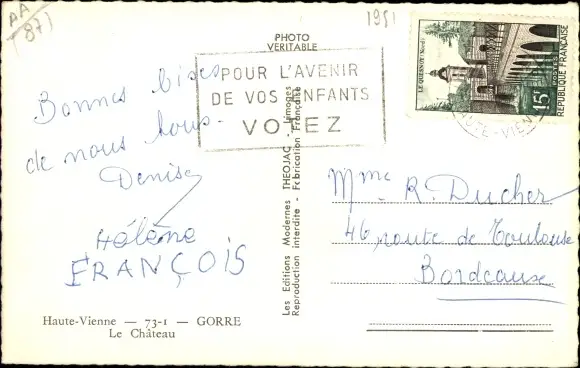 AA
87)
1951
PHOTO
VERITABLE
POUR L'AVENIR
DE VOS ENFANTS
VOTEZ
LE QUESNOY (Nord)
POSTES
15F
REPUBLIQUE FRANÇAISE
HAUTE-VIENNE
Bonnes bises
de nous tous.
Denise
Hélène
FRANÇOIS
Les Editions Modernes THEOJAC - Limoges
Reproduction interdite - Fabrication Française
Mme R. Ducher
46 route de Toulouse
Bordeaux
Haute-Vienne — 73-1 — GORRE
Le Château